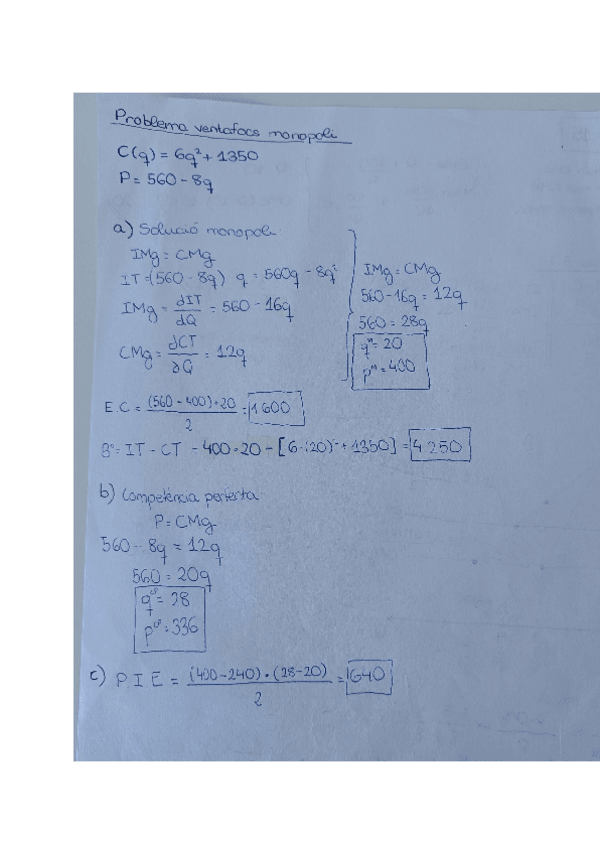 Problema ventafocs monopoli
C(q) = 6q² + 1350
P = 560 - 8q
a) Solució monopoli:
IMg = CMg
IT = (560 - 8q) q = 560q - 8q²
IMg = dIT/dQ = 560 - 16q
CMg = ∂CT/∂Q = 12q
IMg = CMg
560 - 16q = 12q
560 = 28q
qᵐ = 20
pᵐ = 400
E.C = (560 - 400) · 20 / 2 = 1600
Bº = IT - CT = 400 · 20 - [6 · (20)² + 1350] = 4250
b) Competència perfecta
P = CMg
560 - 8q = 12q
560 = 20q
q^cp = 28
p^cp = 336
c) P.I E = (400 - 240) · (28 - 20) / 2 = 640